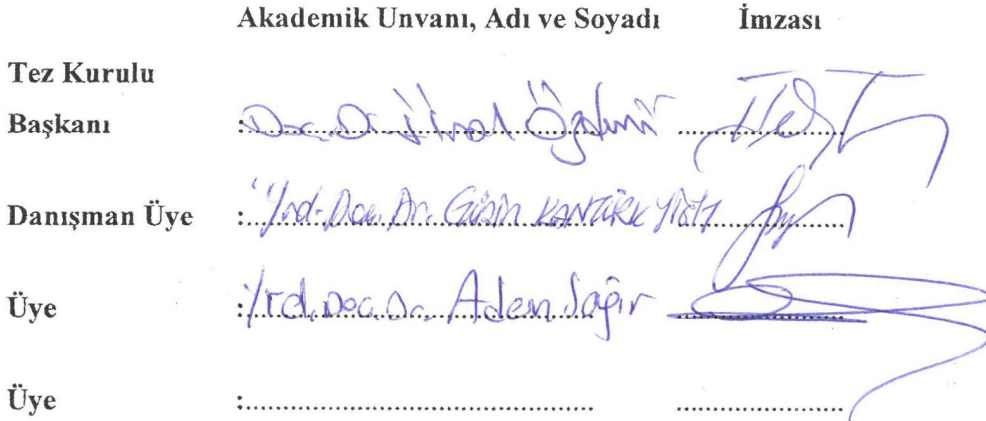 Akademik Unvanı, Adı ve Soyadı İmzası
Tez Kurulu
Başkanı : Doç. Dr.
Danışman Üye : Yrd. Doç. Dr. KANTÜRK YİĞİT
Üye : Yrd. Doç. Dr. Adem Sağır
Üye :